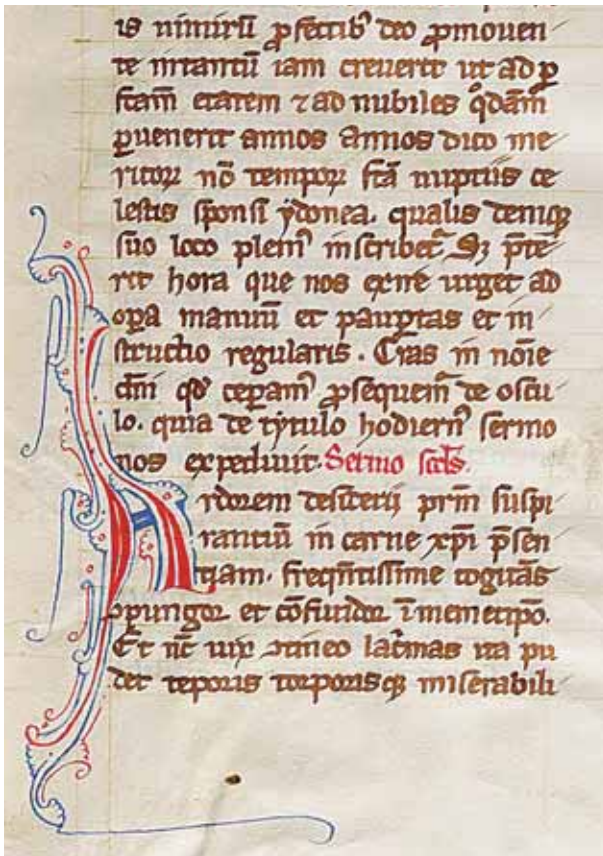 is nimirū ꝓfectibꝰ deo ꝓmouen
te intantū iam creuerit ut ad ꝑ
fctam etatem ⁊ ad nubiles q̊dam̄
ꝑuenerit annos annos dico me
ritoꝝ nō tempoꝝ fc̄a nuptiis ce
lestis sponsi ydonea. qualis deniqꝫ
suo loco pleniꝰ inscribet᷑. Sꝫ p̄te
rit hora que nos exire urget ad
oꝑa manuū et pauꝑtas et in
structio regularis. Cras in noīe
dn̄i qđ ceꝑamꝰ ꝓsequem᷑ de oscu
lo. quia de tytulo hodiernꝰ sermo
nos expediuit. Sermo scd̄s.
Ardorem desiderij pr̄m suspi
rantiū in carne xp̄i p̄sen
tiam. freqn̄tissime cogitās
ꝯpungor et cōfundor ī memetipo.
Et nc̄ uix ꝯtineo lac̄mas ita pu
det teporis torporisqꝫ miserabili